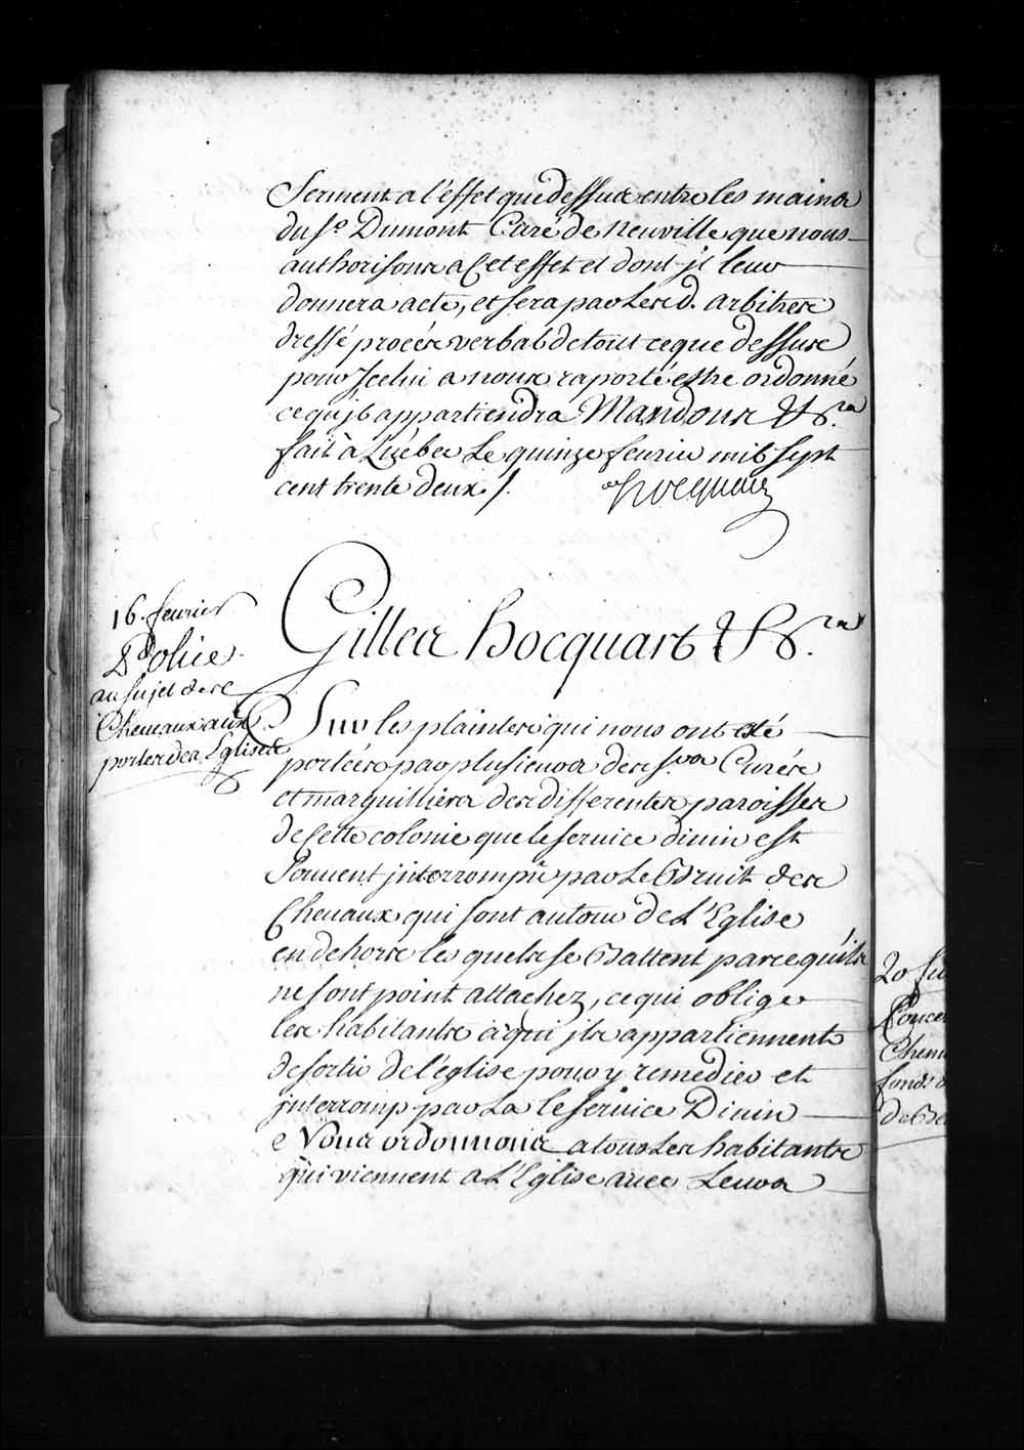 Serment a l'éffet que dessus entre les mains
du Sr. Dumont Curé de Neuville que nous
authorisons a Cet effet et dont jl leur
donnera acte, et sera par Les d. arbitres
dressé procés verbal de tout ce que dessus
pour Jcelui a nous raporté estre ordonné
ce qu'jl appartiendra Mandons &ca.
fait à Québec Le quinze feurier mil sept
cent trente deux /.
Hocquart
16. feurier
Police
au sujet des
Cheuaux aux
portes des Eglises
Gilles hocquart &ca.
Sur les plaintes qui nous ont eté
portées par plusieurs des Srs Curés
et marguilliers des differentes paroisses
de Cette colonie que le seruice diuin est
Souuent jnterrompû par Le Bruit des
Cheuaux qui sont autour de L'Eglise
en dehors les quels se Battent parce qu'ils
ne sont point attachez, ce qui oblige
les habitants à qui jls appartiennent
de sortir de l'église pour y remedier et
jnterromp par La le seruice Diuin
Nous ordonnons a tous Les habitants
qui viennent a L'Eglise auec Leurs
20 feu
Chem
fond. d
de Be